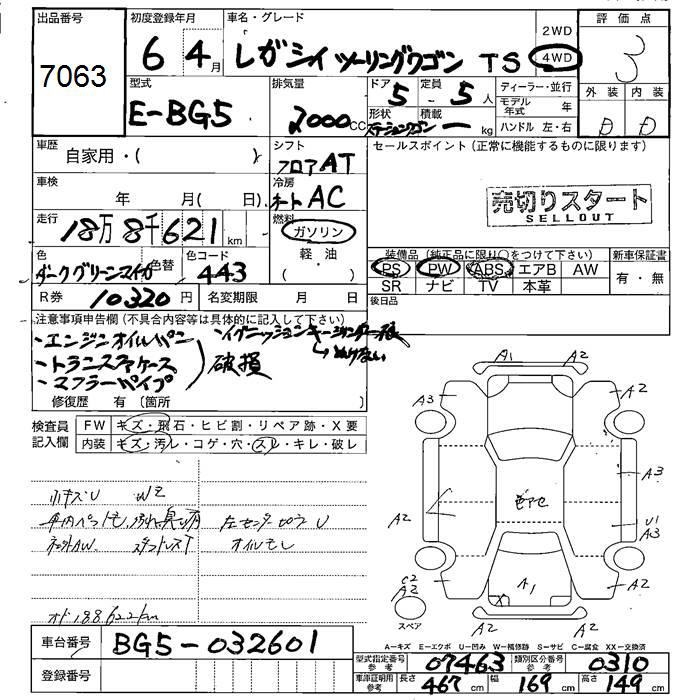 出品番号
7063
初度登録年月
6年 4月
車名・グレード
レガシイ ツーリングワゴン TS
2WD
4WD
評価点
3
外装 内装
D D
型式
E-BG5
排気量
2000cc
ドア
5
定員
5人
形状
ステーションワゴン
積載
ー kg
ディーラー・並行
モデル年式 年
ハンドル 左・右
車歴
自家用・( )
シフト
フロアAT
セールスポイント(正常に機能するものに限ります)
売切りスタート
SELLOUT
車検
年 月( 日)
冷房
オートAC
走行
18万8千621km
燃料
ガソリン
軽・油
( )
色
ダークグリーンマイカ
色替
色コード
443
装備品(純正品に限り○をつけて下さい)
PS PW ABS エアB AW
SR ナビ TV 本革
新車保証書
有・無
R券 10320円
名変期限 月 日
後日品
注意事項申告欄(不具合内容等は具体的に記入して下さい)
・エンジンオイルパン
・トランスファケース
・マフラーパイプ
破損
・イグニッションキーシリンダー不良
→ぬけない
修復歴 有(箇所 )
検査員記入欄
FW キズ・飛石・ヒビ割・リペア跡・X要
内装 キズ・汚レ・コゲ・穴・スレ・キレ・破レ
小キズU W2
オイルモレ
オド188.622km
A1
A2
A3
A2
A2
A3
U1
A3
A2
A2
C2
A2
A1
X
A2
A2
スペア
A=キズ E=エクボ U=凹み W=補修跡 S=サビ C=腐食 XX=交換済
車台番号
BG5-032601
登録番号
型式指定番号 参考
07463
類別区分番号 参考
0310
車庫証明用 参考
長さ 467cm
幅 169cm
高さ 149cm